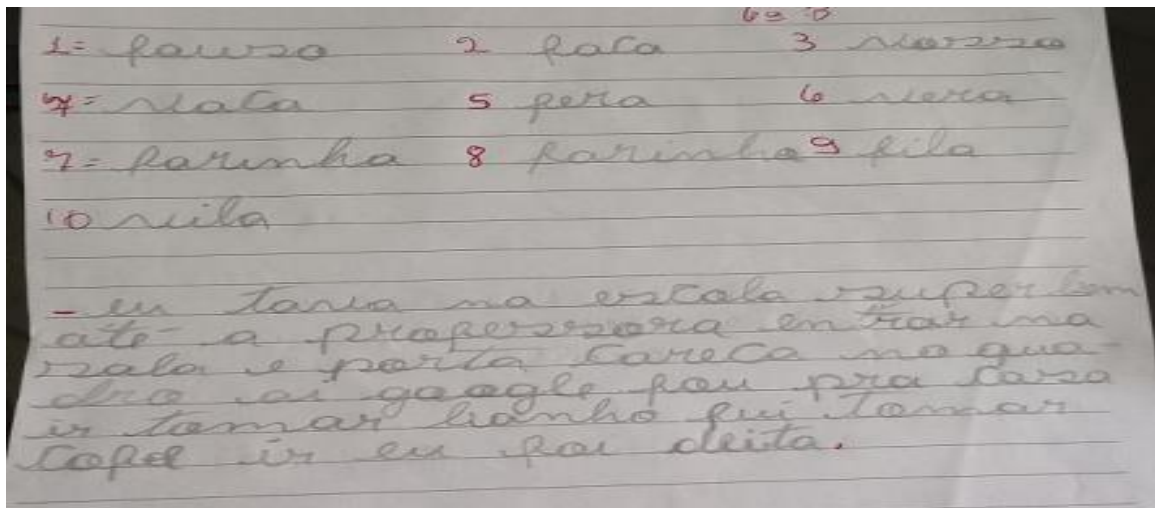 1= fauso 2 faca 3 vasso
4= vaca 5 fera 6 vera
7= farinha 8 farinha 9 fila
10 vila
- eu tava na escola super bem
até a profossora entrar na
sala e parta careca no qua-
dro ai google fou pra casa
ir tomar banho fui tomar
cafe ir eu fou deita.